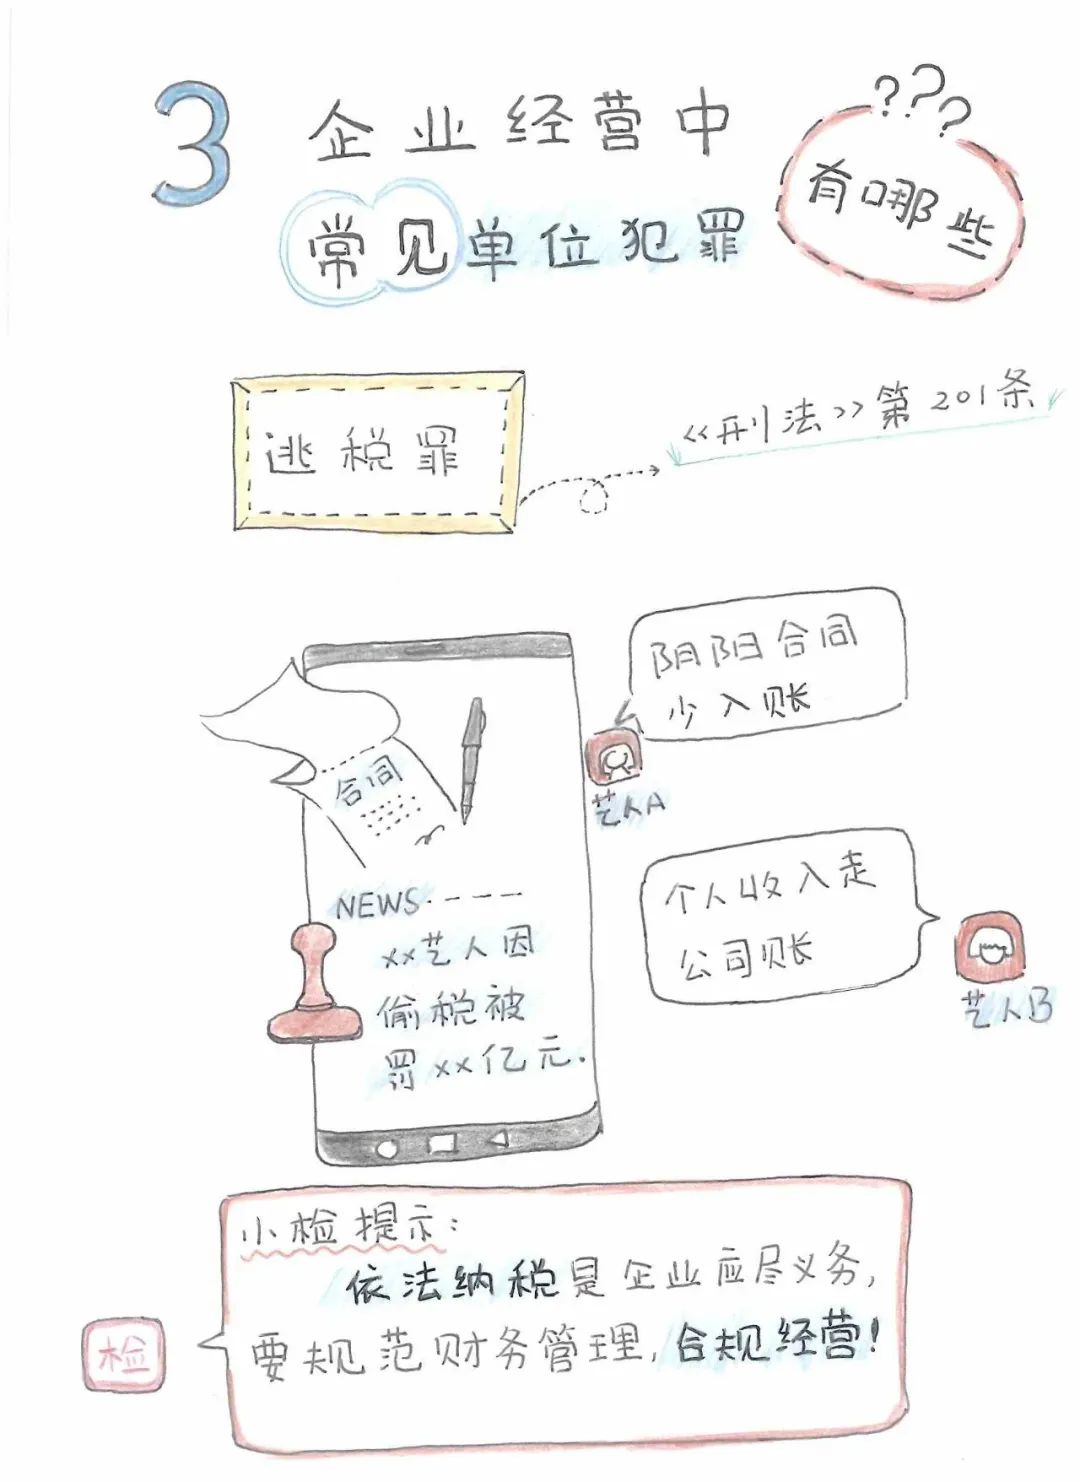 3
企业经营中
常见单位犯罪
???
有哪些
逃税罪
《刑法》第201条
阴阳合同
少入账
艺人A
合同
个人收入走
公司账
艺人B
NEWS----
xx艺人因
偷税被
罚xx亿元.
小检提示:
依法纳税是企业应尽义务,
要规范财务管理,合规经营!
检